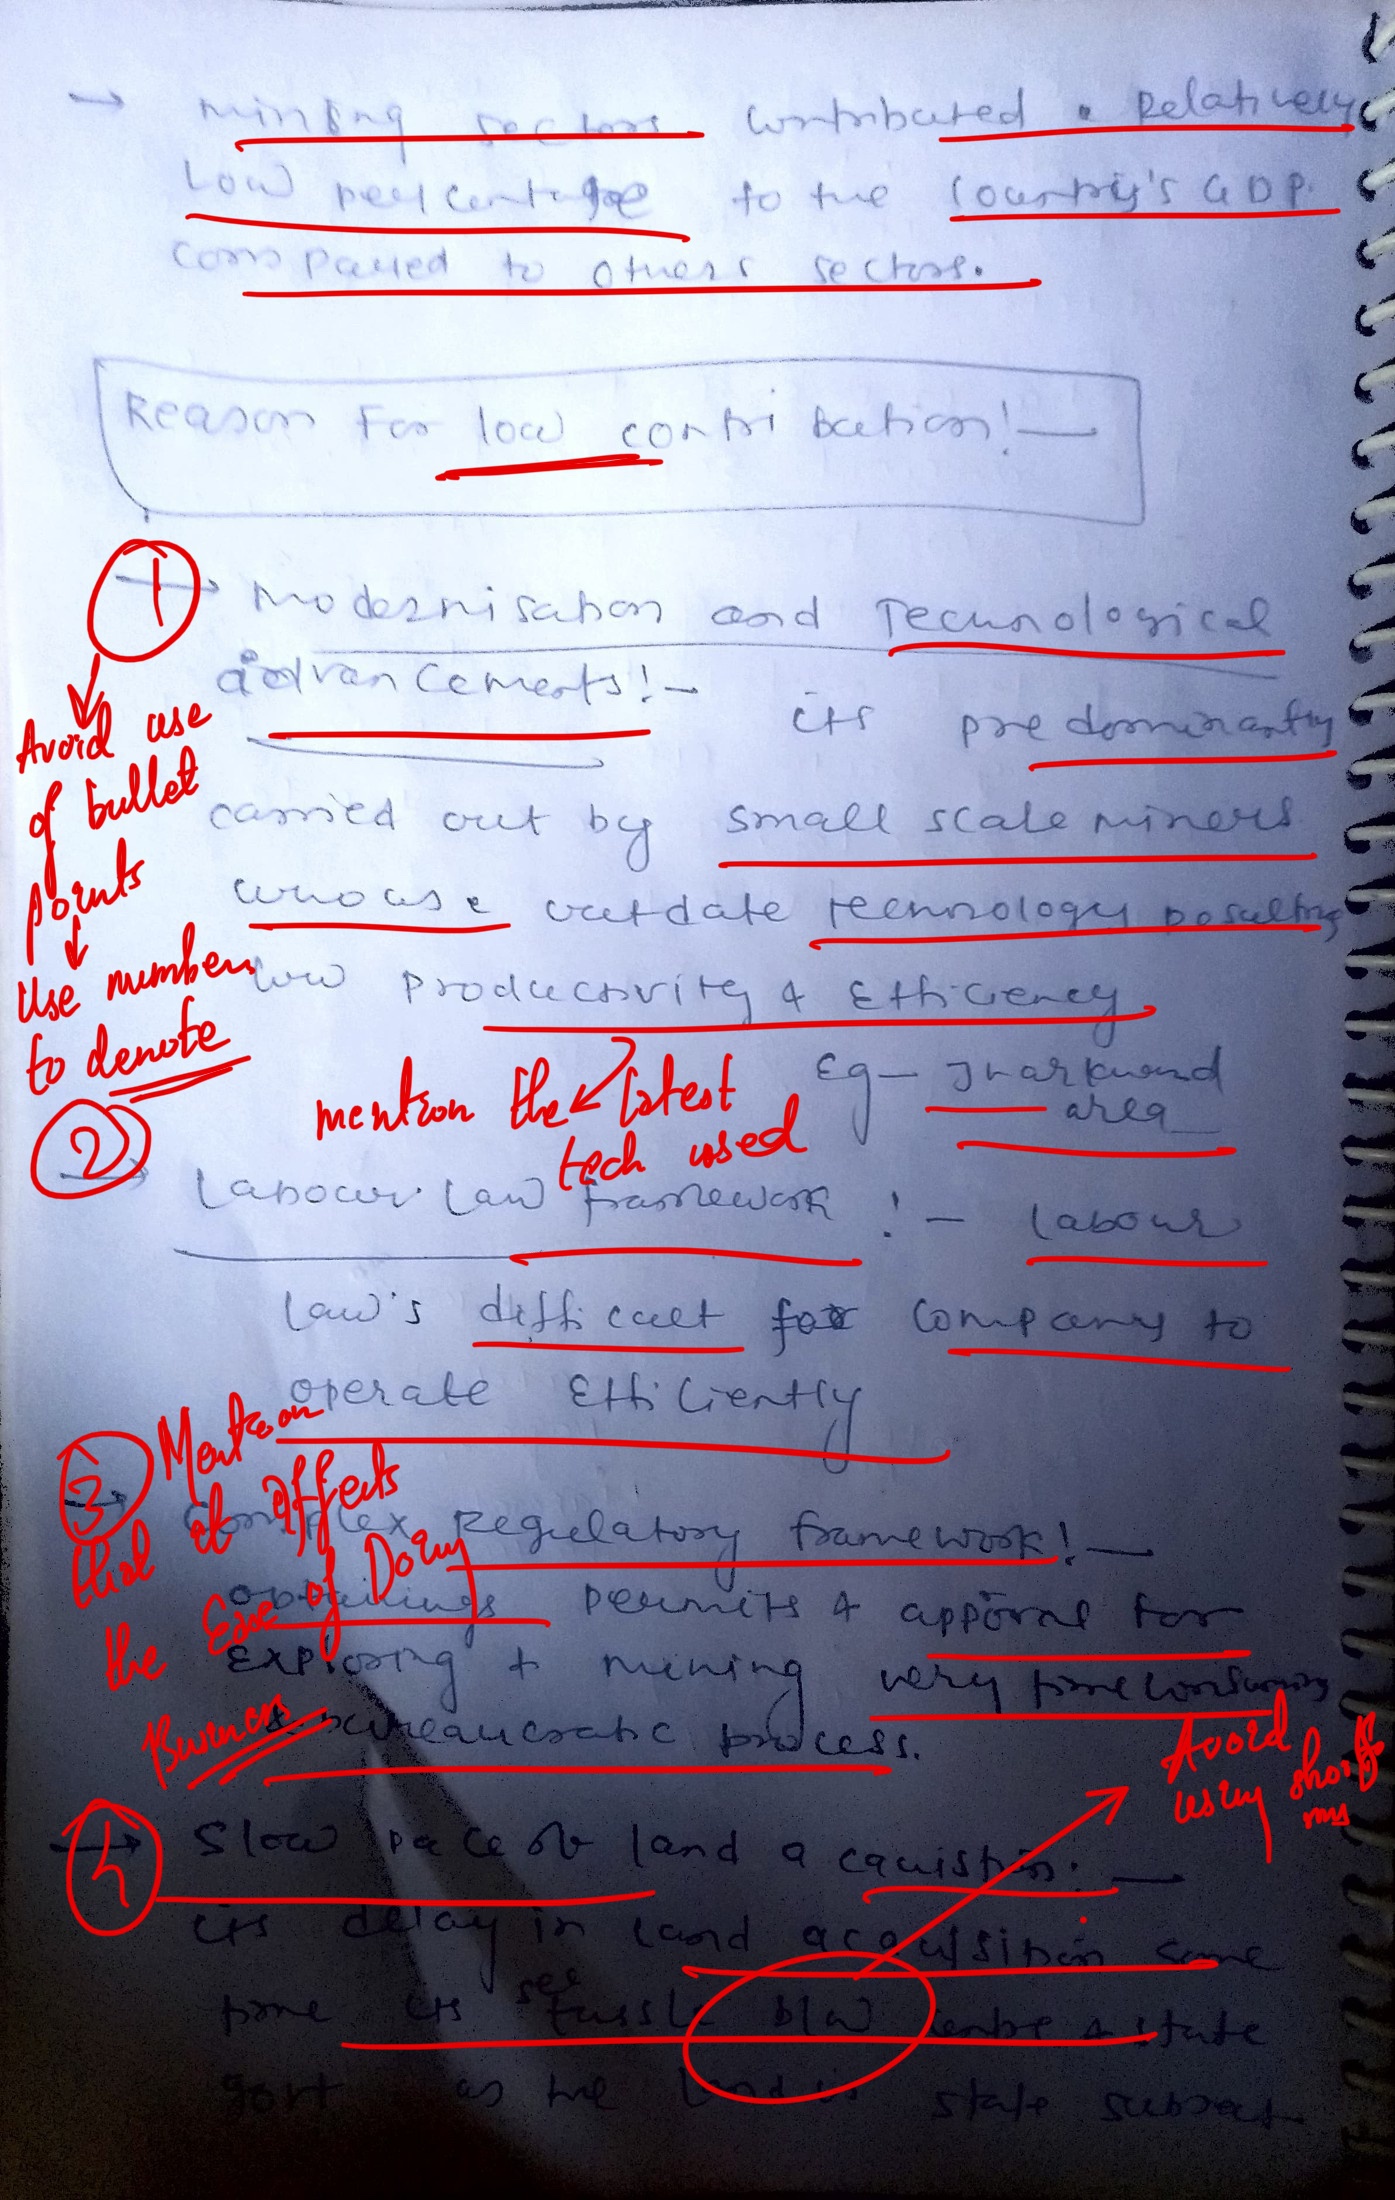 → mining sectors contributed a Relatively
Low percentage to the country's GDP.
compared to others sectors.
Reason For low contribution!—
1
→ Modernisation and Technological
advancements!- its predominantly
carried out by small scale miners
who use outdate technology resulting
low Productivity & Efficiency
Eg- Jharkhand
area
Avoid use
of bullet
points
↓
Use numbers
to denote
mention the latest
tech used
2
→ Labour law framework !- labour
law's difficult for company to
operate Efficiently
3
→ Complex Regulatory framework!—
obtainings permits & for
Exploring + mining very time consuming
& bureaucratic process.
Mention
that it affects
the Ease of Doing
Business
4
→ Slow pace of land :—
its delay in land some
time its tussle b/w & state
govt as the land is state
Avoid
using short